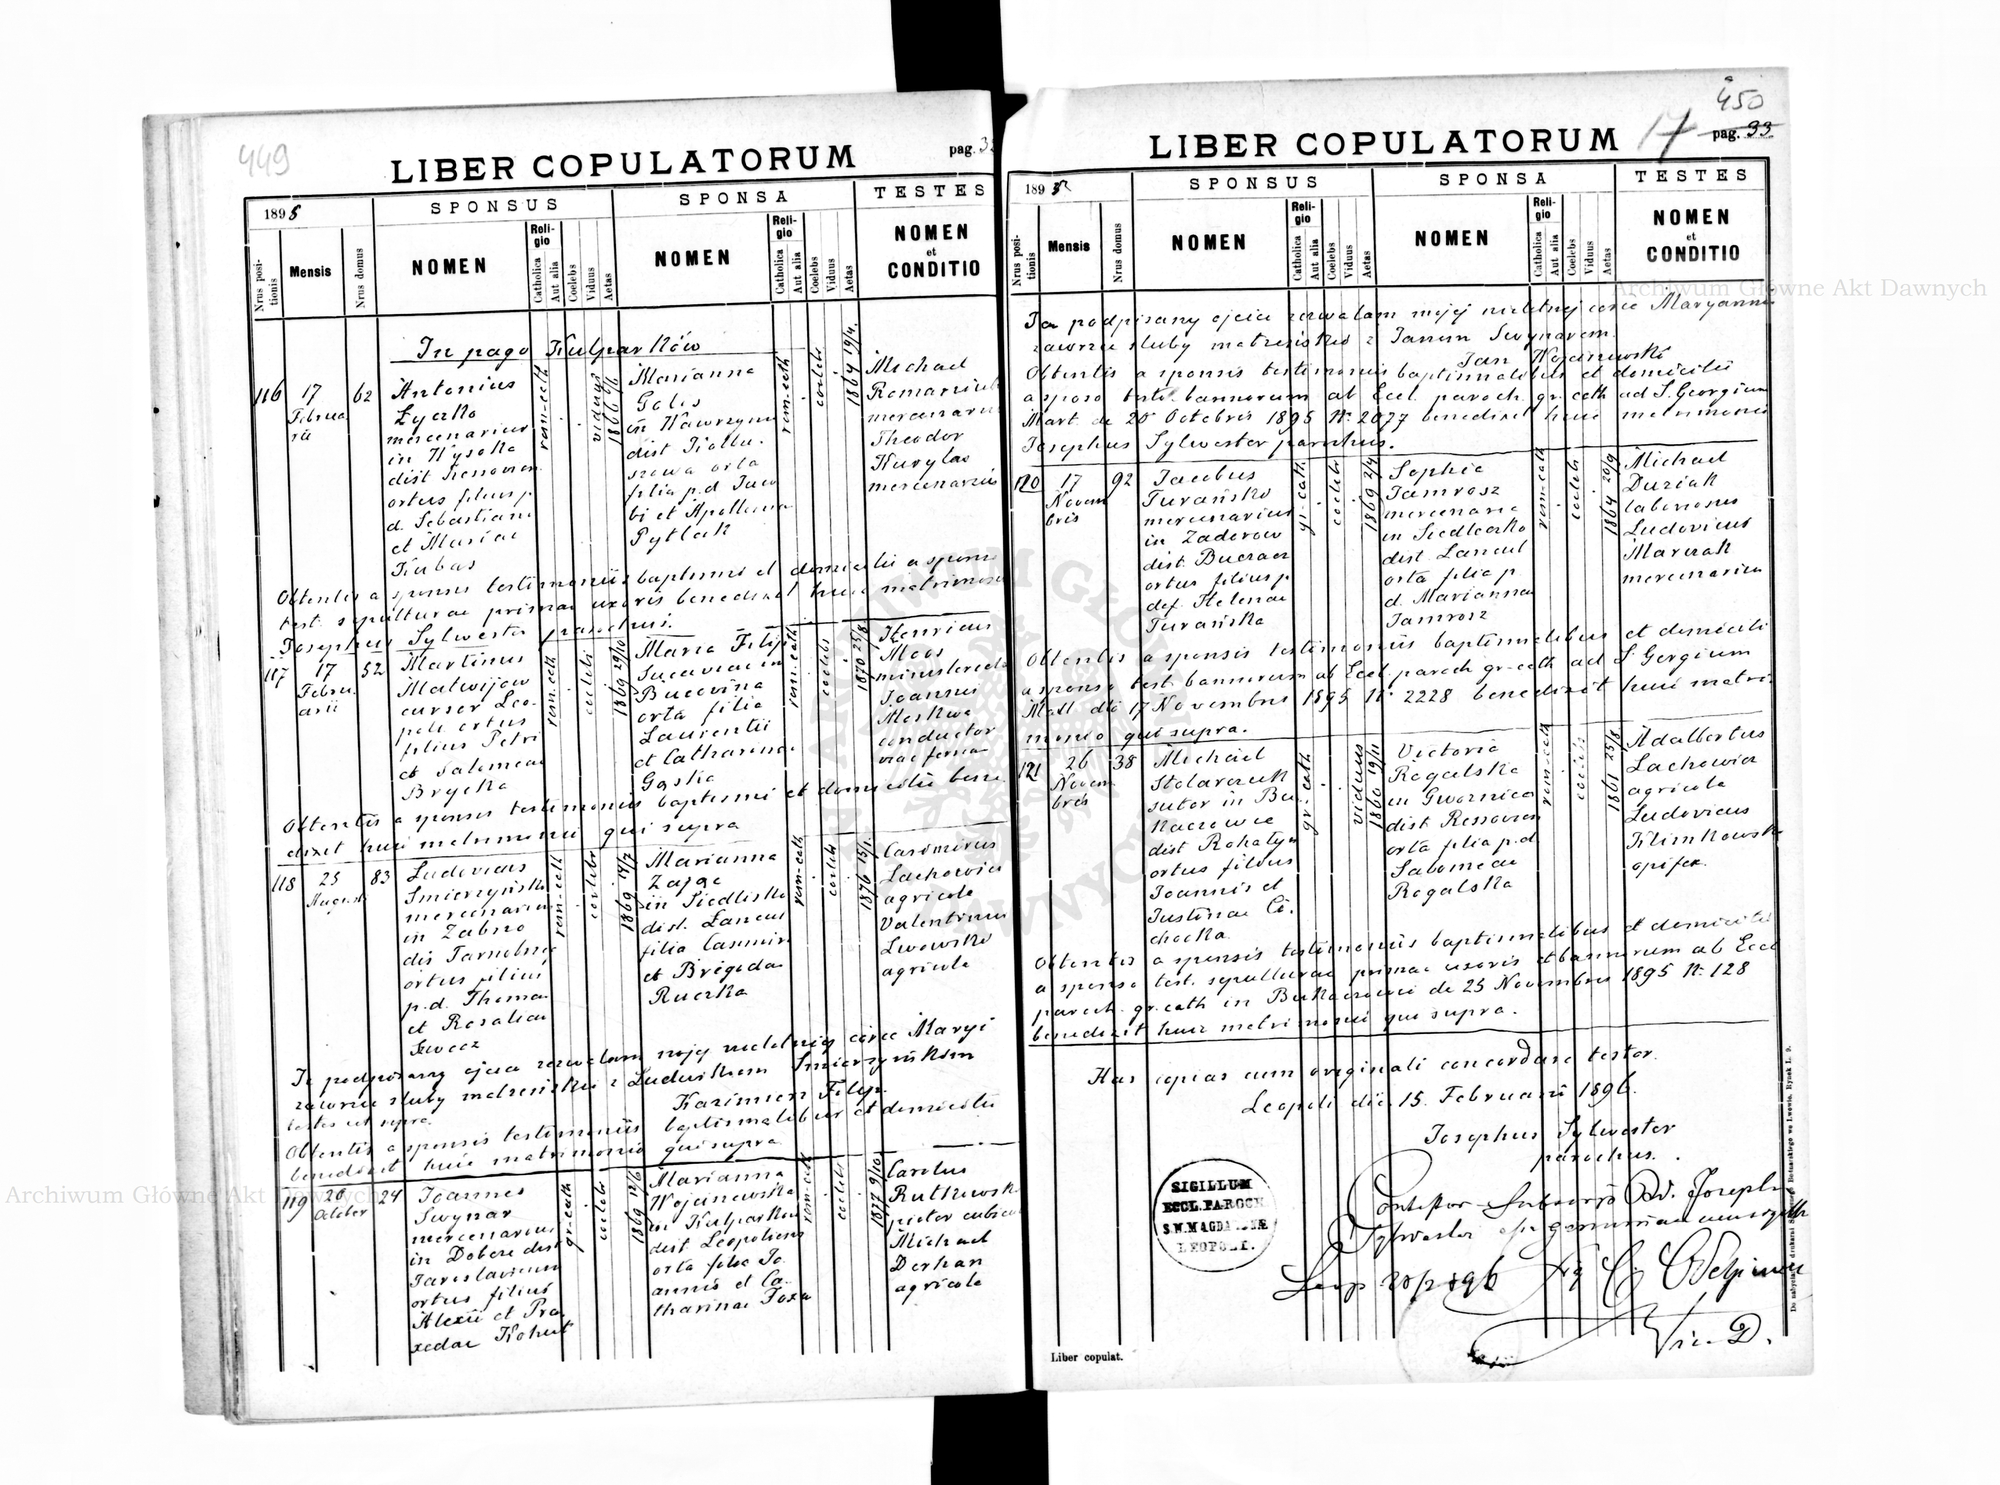 449
LIBER COPULATORUM
pag. 3
1895
SPONSUS
SPONSA
TESTES
Nrus positionis
Mensis
Nrus domus
NOMEN
Religio
Catholica
Aut alia
Coelebs
Viduus
Aetas
NOMEN
Religio
Catholica
Aut alia
Coelebs
Viduus
Aetas
NOMEN
et
CONDITIO
In pago Kulparków
116
17
Februa
rii
62
Antonius
Zyczko
mercenarius
in Wysoka
dist
ortus filius p.
d. Sebastiani
et Mariae
Kubas
rom-cath
viduus
Marianna
Goles
in Wawrzyn
dist
szowa orta
filia p.d Jaco
bi et Apollonia
Pytlak
rom-cath
coelebs
1869 19/4.
Michael
Romaniuk
mercenarius
Theodor
Kurylas
mercenarius
Obtentis a sponsis testimoniis baptismi et domicilii a sponso
test. sepulturae primae uxoris benedixit huic matrimonio
Josephus Sylwester parochus.
117
17
Febru
arii
52
Martinus
Matwijow
cursor Leo-
poli ortus
filius Petri
et Salomeae
Brycka
rom.cath
coelebs
1869 29/10
Maria Filip
Sucaviae in
Bucovina
orta filia
Laurentii
et Catharinae
Gaslia
rom.cath
coelebs
1870 25/8
Henricus
Moos
Joannes
Moskwa
conductor
viae ferrea
Obtentis a sponsis testimoniis baptismi et domicilii bene
dixit huic matrimonii qui supra
118
25
Augusti
83
Ludovicus
Smierzyński
mercenarius
in Zabno
dis Tarnobrze
ortus filius
p.d. Thomae
et Rosaliae
rom-cath
coelebs
1869 14/7
Marianna
Zając
in Siedliska
dist. Lancut
filia Casimiri
et Brigidae
Ruczka
rom-cath
coelebs
1876 15/1.
Casimirus
Lachowicz
agricola
Valentinus
Lwowski
agricola
Ja podpisany ojciec zezwalam mojej nieletniej córce Maryi
zawrzeć śluby małżeńskie z Ludwikiem Smierzyńskim
Kazimierz Filip.
testes ut supra.
Obtentis a sponsis testimoniis baptismalibus et domicilii
benedixit huic matrimonio qui supra
119
20
October
24
Joannes
Swynar
mercenarius
in Dobra dist
Jaroslaviensi
ortus filius
Alexii et Pra
xedae Kohut
gr-cath
coelebs
1869 12/6
Marianna
Wojanowska
in Kulparkow
dist. Leopoliens
orta filia Jo
annis et Ca-
tharinae Foxa
rom-cath
coelebs
1877 9/10
Carolus
Rutkowski
pictor cubicul
Michael
Derkan
agricola
450
17
pag. 33
LIBER COPULATORUM
1895
SPONSUS
SPONSA
TESTES
Nrus positionis
Mensis
Nrus domus
NOMEN
Religio
Catholica
Aut alia
Coelebs
Viduus
Aetas
NOMEN
Religio
Catholica
Aut alia
Coelebs
Viduus
Aetas
NOMEN
et
CONDITIO
Ja podpisany ojciec zezwalam mojej nieletnej córce Maryannie
zawrzeć śluby małżeńskie z Janem Swynarem.
Jan Wojanowski
Obtentis a sponsis testimoniis baptismalibus et domicilii
a sponso testi. bannorum ab Eccl. paroch. gr. cath ad S. Georgium
Mart. de 20 Octobris 1895 N. 2077 benedixit huic matrimonio
Josephus Sylwester parochus.
120
17
Novem
bris
92
Jacobus
Turańsko
mercenarius
in Zadorow
dist. Buczacz
ortus filius p.
def. Helenae
Turańska
gr-cath.
coelebs
1869 2/4
Sophia
Jamrosz
mercenaria
in Siedleczka
dist. Lancut
orta filia p.
d. Marianna
Jamrosz
rom-cath
coelebs
1864 20/9
Michael
Duziak
laboriosus
Ludovicus
Marczak
mercenarius
Obtentis a sponsis testimoniis baptismalibus et domicilii
a sponso test. bannorum ab Eccl. paroch gr-cath ad S Gergium
Mart dto 17 Novembris 1895 N. 2228 benedixit huic matri-
monio qui supra.
121
26
Novem
bris
38
Michael
Stolarczuk
sutor in Bu
kaczowce
dist Rohatyn
ortus filius
Joannis et
Justinae Ci-
chocka
gr. cath
viduus
1860 19/11
Victoria
Rogalska
in Gwoznica
dist Ressovien
orta filia p.d.
Salomeae
Rogalska
rom-cath
coelebs
1861 25/8
Adalbertus
Lachowicz
agricola
Ludovicus
Klimkowski
opifex.
Obtentis a sponsis testimoniis baptismalibus et domicilii
a sponso test. sepulturae primae uxoris et bannorum ab Eccl
paroch. gr.cath in Bukaczowci de 25 Novembris 1895 N. 128
benedixit huic matrimonii qui supra.
Has copias cum originali concordare testor.
Leopoli die 15. Februarii 1896.
Josephus Sylwester
parochus.
SIGILLUM
ECCL.PAROCH
S.M.MAGDALENÆ
LEOPOLI.
Josephi
Sylwester
Vic. D.
Liber copulat.
Archiwum Główne Akt Dawnych
Archiwum Główne Akt Dawnych